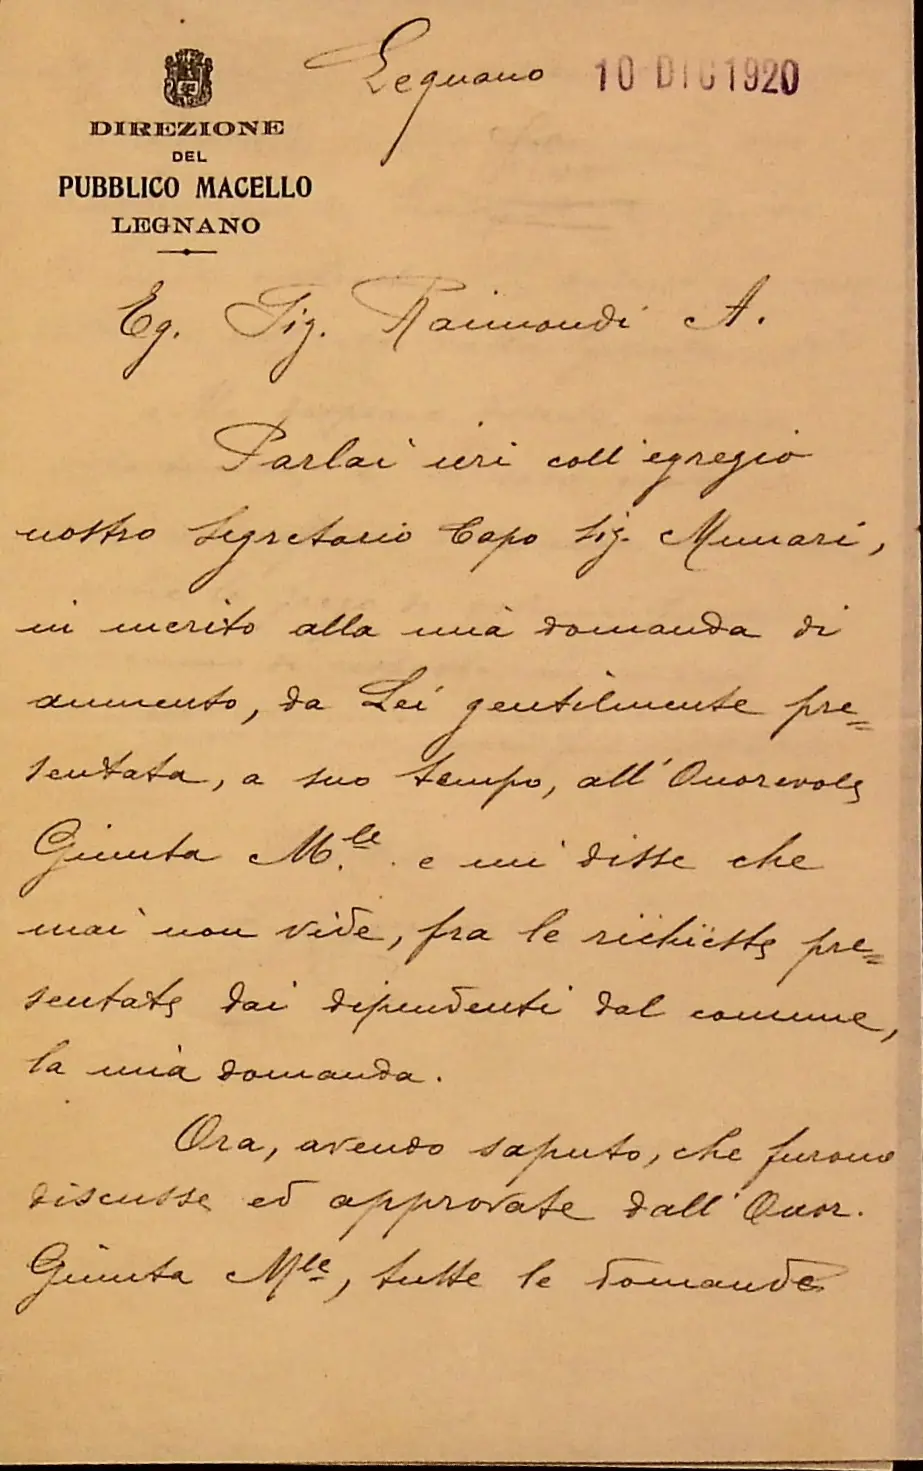 DIREZIONE
DEL
PUBBLICO MACELLO
LEGNANO
Legnano 10 DIC 1920
Eg. Sig. Raimondi A.
Parlai ieri coll'egregio
nostro Segretario Capo Sig. Munari,
in merito alla mia domanda di
aumento, da Lei gentilmente pre=
sentata, a suo tempo, all'Onorevole
Giunta M.le e mi disse che
mai non vide, fra le richieste pre=
sentate dai dipendenti dal comune,
la mia domanda.
Ora, avendo saputo, che furono
discusse ed approvate dall'Onor.
Giunta Mle, tutte le domande